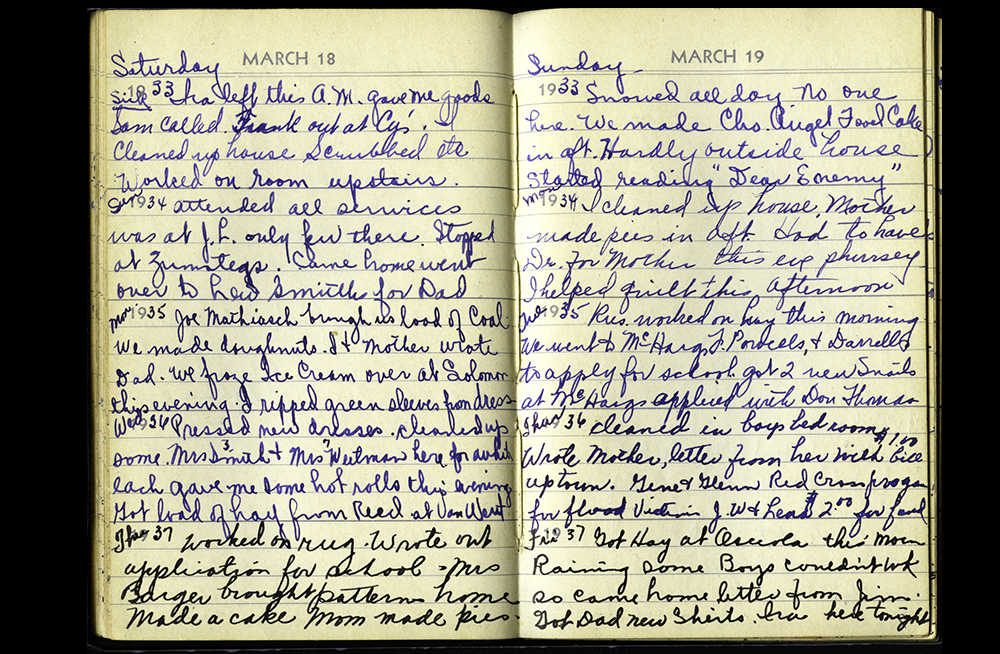 MARCH 18
Saturday
1933 Ira left this A.M. gave me goods
Sick
Sam called. Frank out at Cy's. I
Cleaned up house Scrubbed etc
Worked on room upstairs.
Sun 1934 attended all services
was at J.L. only few there. Stopped
at Zumstegs. Came home went
over to Smiths for Dad
Mon 1935 Joe Mathiasch brough us load of Coal
We made doughnuts. I & Mother wrote
Dad. We froze Ice Cream over at Solomon
this evening. I ripped green sleeves from dress
Wed 1936 Pressed new dresses. cleaned up
some. Mrs Smith & Mrs Weetman here for awhile
each gave me some hot rolls this evening
Got load of hay from Reed at Van Wert
Thur 37 worked on rug. Wrote out
application for school - Mrs
Barger brought patterns home
Made a cake Mom made pies.
MARCH 19
Sunday
1933 Snowed all day. No one
here. We made Cho. Angel Food Cake
in aft. Hardly outside house
Started reading "Dear Enemy"
Mon 1934 I cleaned up house, Mother
made pies in aft. Had to have
Dr. for Mother this eve
I helped quilt this afternoon
Tue 1935 worked on hay this morning
We went to McHargs, F. Powells, & Darrells
to apply for school got 2 new
at McHargs applied with Don Thomas
Thur 36 cleaned in boys bedroom
Wrote Mother, letter from her with $1.00 bill
uptown. Gene & Glenn Red Cross program
for flood Victim J.W & Lena $2.00 for
Fri 1937 Got Hay at Osceola this Morn
Raining some Boys couldn't wk
so came home letter from Jim.
Got Dad new Shirts. Ira here tonight